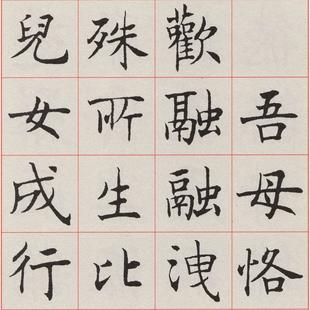 吾母恪
歡融融洩
殊所生比
兒女成行